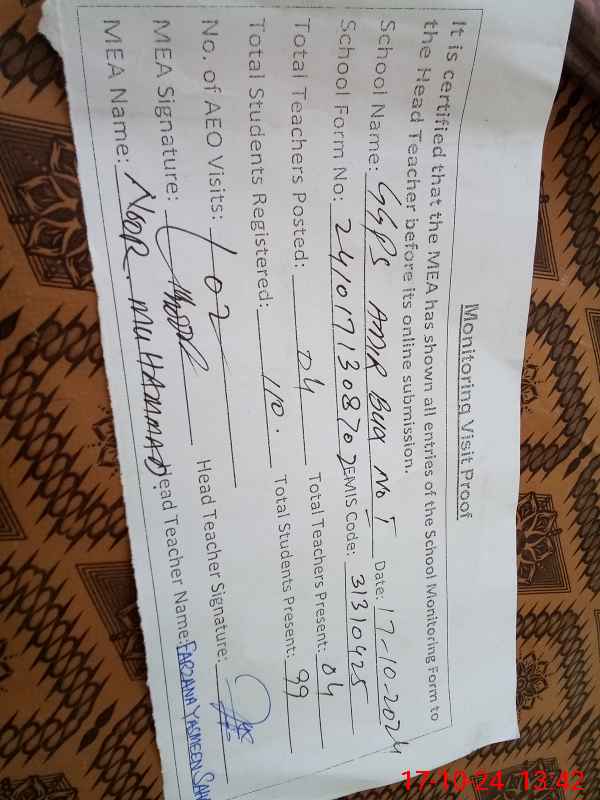 Monitoring Visit Proof
It is certified that the MEA has shown all entries of the School Monitoring Form to
the Head Teacher before its online submission.
School Name: GGPS AMIR BUX No I Date: 17-10-2024
School Form No: 2410171308702 EMIS Code: 31310425
Total Teachers Posted: 04 Total Teachers Present: 04
Total Students Registered: 110. Total Students Present: 99
No. of AEO Visits: 02
MEA Signature: Head Teacher Signature:
MEA Name: NOOR MUHAMMAD. Head Teacher Name: FARZANA YASMEEN
17-10-24 13:42